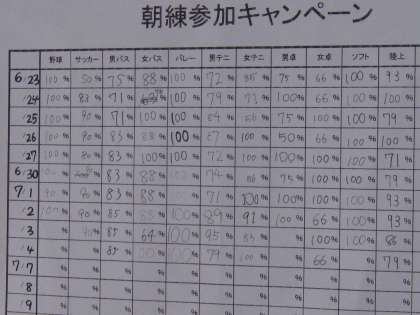 朝練参加キャンペーン
野球 サッカー 男バス 女バス バレー 男テニ 女テニ 男卓 女卓 ソフト 陸上
6/23 100% 50% 75% 88% 100% 72% % 75% 66% 100% 93%
/24 100% 83% 71% % 100% 79% 73% 100% 66% 100% 86%
/25 100% 90% 71% 100% 100% % % 75% 100% 100% 79%
/26 100% 90% 83% 88% 100% 67% 100% 50% 66% 100% 100%
/27 100% 80% 83% 100% 100% 72% 100% 100% 100% 100% 71%
6/30 % % 83% 88% % 74% % 75% 100% 100% 79%
7/1 % 90% 83% 88% % 71% 100% 100% 66% 100% 93%
/2 100% 90% 85% 88% 100% 89% 92% 100% 66% 100% 93%
/3 % 90% 85% 64% 100% 95% % % 100% 100% 86%
/4 % % 85% % 100% 79% 100% % 66% % 79%
7/7 % % % % % % % % % % %
/8 % % % % % % % % % % %
/9 % % % % % % % % % % %